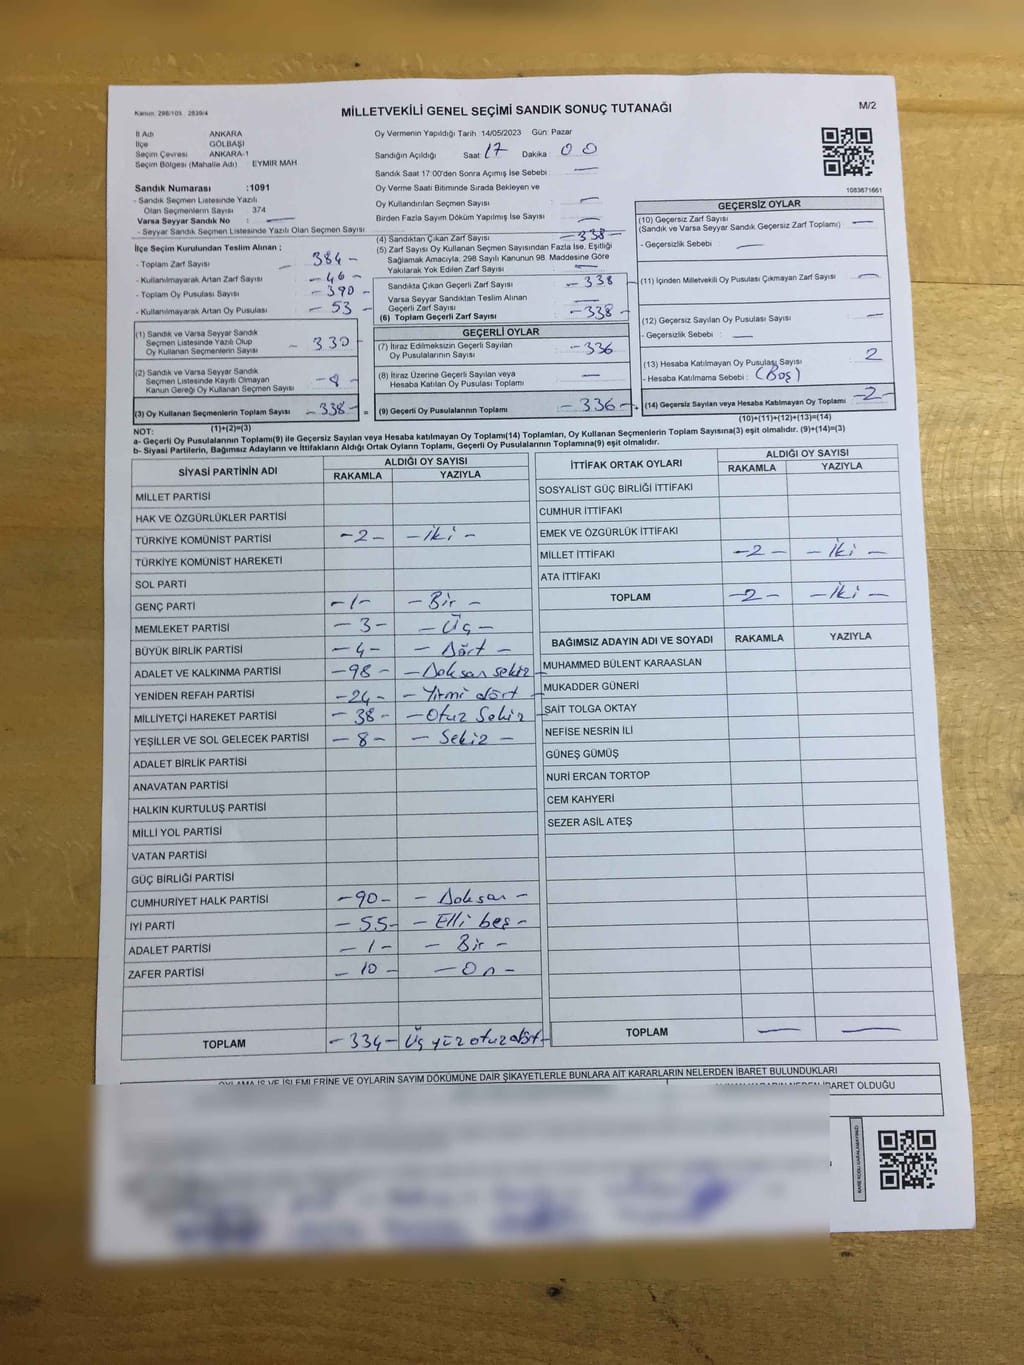 Kanun: 298/105 2839/4
MİLLETVEKİLİ GENEL SEÇİMİ SANDIK SONUÇ TUTANAĞI
M/2
İl Adı ANKARA
İlçe GÖLBAŞI
Seçim Çevresi ANKARA-1
Seçim Bölgesi (Mahalle Adı) EYMIR MAH
Sandık Numarası :1091
- Sandık Seçmen Listesinde Yazılı
Olan Seçmenlerin Sayısı : 374
Varsa Seyyar Sandık No : —
- Seyyar Sandık Seçmen Listesinde Yazılı Olan Seçmen Sayısı
Oy Vermenin Yapıldığı Tarih :14/05/2023 Gün: Pazar
Sandığın Açıldığı Saat 17 Dakika 00
Sandık Saat 17:00'den Sonra Açımış İse Sebebi : —
Oy Verme Saati Bitiminde Sırada Bekleyen ve
Oy Kullandırılan Seçmen Sayısı —
Birden Fazla Sayım Döküm Yapılmış İse Sayısı —
1083671661
İlçe Seçim Kurulundan Teslim Alınan ;
- Toplam Zarf Sayısı 384 -
- Kullanılmayarak Artan Zarf Sayısı - 46 -
- Toplam Oy Pusulası Sayısı - 390 -
- Kullanılmayarak Artan Oy Pusulası - 53 -
(1) Sandık ve Varsa Seyyar Sandık
Seçmen Listesinde Yazılı Olup
Oy Kullanan Seçmenlerin Sayısı - 330 -
(2) Sandık ve Varsa Seyyar Sandık
Seçmen Listesinde Kayıtlı Olmayan
Kanun Gereği Oy Kullanan Seçmen Sayısı - 8 -
(3) Oy Kullanan Seçmenlerin Toplam Sayısı - 338 - =
(1)+(2)=(3)
(4) Sandıktan Çıkan Zarf Sayısı - 338 -
(5) Zarf Sayısı Oy Kullanan Seçmen Sayısından Fazla İse, Eşitliği
Sağlamak Amacıyla, 298 Sayılı Kanunun 98. Maddesine Göre
Yakılarak Yok Edilen Zarf Sayısı —
Sandıkta Çıkan Geçerli Zarf Sayısı - 338 -
Varsa Seyyar Sandıktan Teslim Alınan
Geçerli Zarf Sayısı —
(6) Toplam Geçerli Zarf Sayısı - 338 -
GEÇERLİ OYLAR
(7) İtiraz Edilmeksizin Geçerli Sayılan
Oy Pusulalarının Sayısı - 336
(8) İtiraz Üzerine Geçerli Sayılan veya
Hesaba Katılan Oy Pusulası Toplamı —
(9) Geçerli Oy Pusulalarının Toplamı - 336 - +
GEÇERSİZ OYLAR
(10) Geçersiz Zarf Sayısı —
(Sandık ve Varsa Seyyar Sandık Geçersiz Zarf Toplamı)
- Geçersizlik Sebebi : —
(11) İçinden Milletvekili Oy Pusulası Çıkmayan Zarf Sayısı —
(12) Geçersiz Sayılan Oy Pusulası Sayısı —
- Geçersizlik Sebebi : —
(13) Hesaba Katılmayan Oy Pusulası Sayısı 2
- Hesaba Katılmama Sebebi : (Boş)
(14) Geçersiz Sayılan veya Hesaba Katılmayan Oy Toplamı - 2 -
(10)+(11)+(12)+(13)=(14)
NOT:
a- Geçerli Oy Pusulalarının Toplamı(9) ile Geçersiz Sayılan veya Hesaba katılmayan Oy Toplamı(14) Toplamları, Oy Kullanan Seçmenlerin Toplam Sayısına(3) eşit olmalıdır. (9)+(14)=(3)
b- Siyasi Partilerin, Bağımsız Adayların ve İttifakların Aldığı Ortak Oyların Toplamı, Geçerli Oy Pusulalarının Toplamına(9) eşit olmalıdır.
SİYASİ PARTİNİN ADI ALDIĞI OY SAYISI
RAKAMLA YAZIYLA
MİLLET PARTİSİ
HAK VE ÖZGÜRLÜKLER PARTİSİ
TÜRKİYE KOMÜNİST PARTİSİ - 2 - - İki -
TÜRKİYE KOMÜNİST HAREKETİ
SOL PARTİ
GENÇ PARTİ - 1 - - Bir -
MEMLEKET PARTİSİ - 3 - - Üç -
BÜYÜK BİRLİK PARTİSİ - 4 - - Dört -
ADALET VE KALKINMA PARTİSİ - 98 - - Doksan sekiz -
YENİDEN REFAH PARTİSİ - 24 - - Yirmi dört -
MİLLİYETÇİ HAREKET PARTİSİ - 38 - - Otuz Sekiz -
YEŞİLLER VE SOL GELECEK PARTİSİ - 8 - - Sekiz -
ADALET BİRLİK PARTİSİ
ANAVATAN PARTİSİ
HALKIN KURTULUŞ PARTİSİ
MİLLİ YOL PARTİSİ
VATAN PARTİSİ
GÜÇ BİRLİĞİ PARTİSİ
CUMHURİYET HALK PARTİSİ - 90 - - Doksan -
İYİ PARTİ - 55 - - Elli beş -
ADALET PARTİSİ - 1 - - Bir -
ZAFER PARTİSİ - 10 - - On -
TOPLAM - 334 - Üç yüz otuz dört -
İTTİFAK ORTAK OYLARI ALDIĞI OY SAYISI
RAKAMLA YAZIYLA
SOSYALİST GÜÇ BİRLİĞİ İTTİFAKI
CUMHUR İTTİFAKI
EMEK VE ÖZGÜRLÜK İTTİFAKI
MİLLET İTTİFAKI - 2 - - İki -
ATA İTTİFAKI
TOPLAM - 2 - - İki -
BAĞIMSIZ ADAYIN ADI VE SOYADI RAKAMLA YAZIYLA
MUHAMMED BÜLENT KARAASLAN
MUKADDER GÜNERİ
SAİT TOLGA OKTAY
NEFİSE NESRİN İLİ
GÜNEŞ GÜMÜŞ
NURİ ERCAN TORTOP
CEM KAHYERİ
SEZER ASİL ATEŞ
TOPLAM — —
OYLAMA İŞ VE İŞLEMLERİNE VE OYLARIN SAYIM DÖKÜMÜNE DAİR ŞİKAYETLERLE BUNLARA AİT KARARLARIN NELERDEN İBARET BULUNDUKLARI
İBARET OLDUĞU